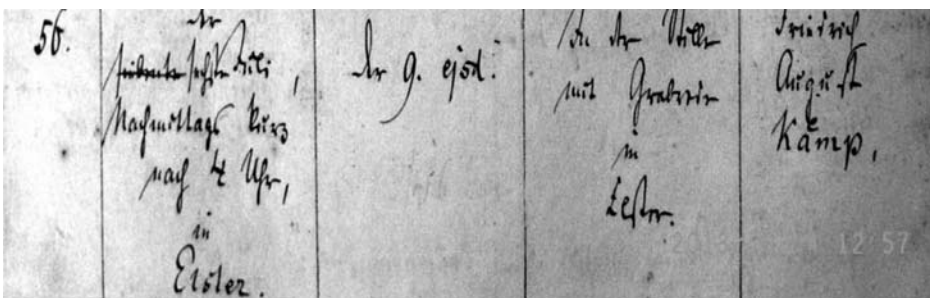 56.
der
siebente sechste Juli,
Nachmittags kurz
nach 4 Uhr,
in
Elster.
der 9. ejsd.
In der Stille
mit Grabrede
in
Elster.
Friedrich
August
Kämp,
12 57